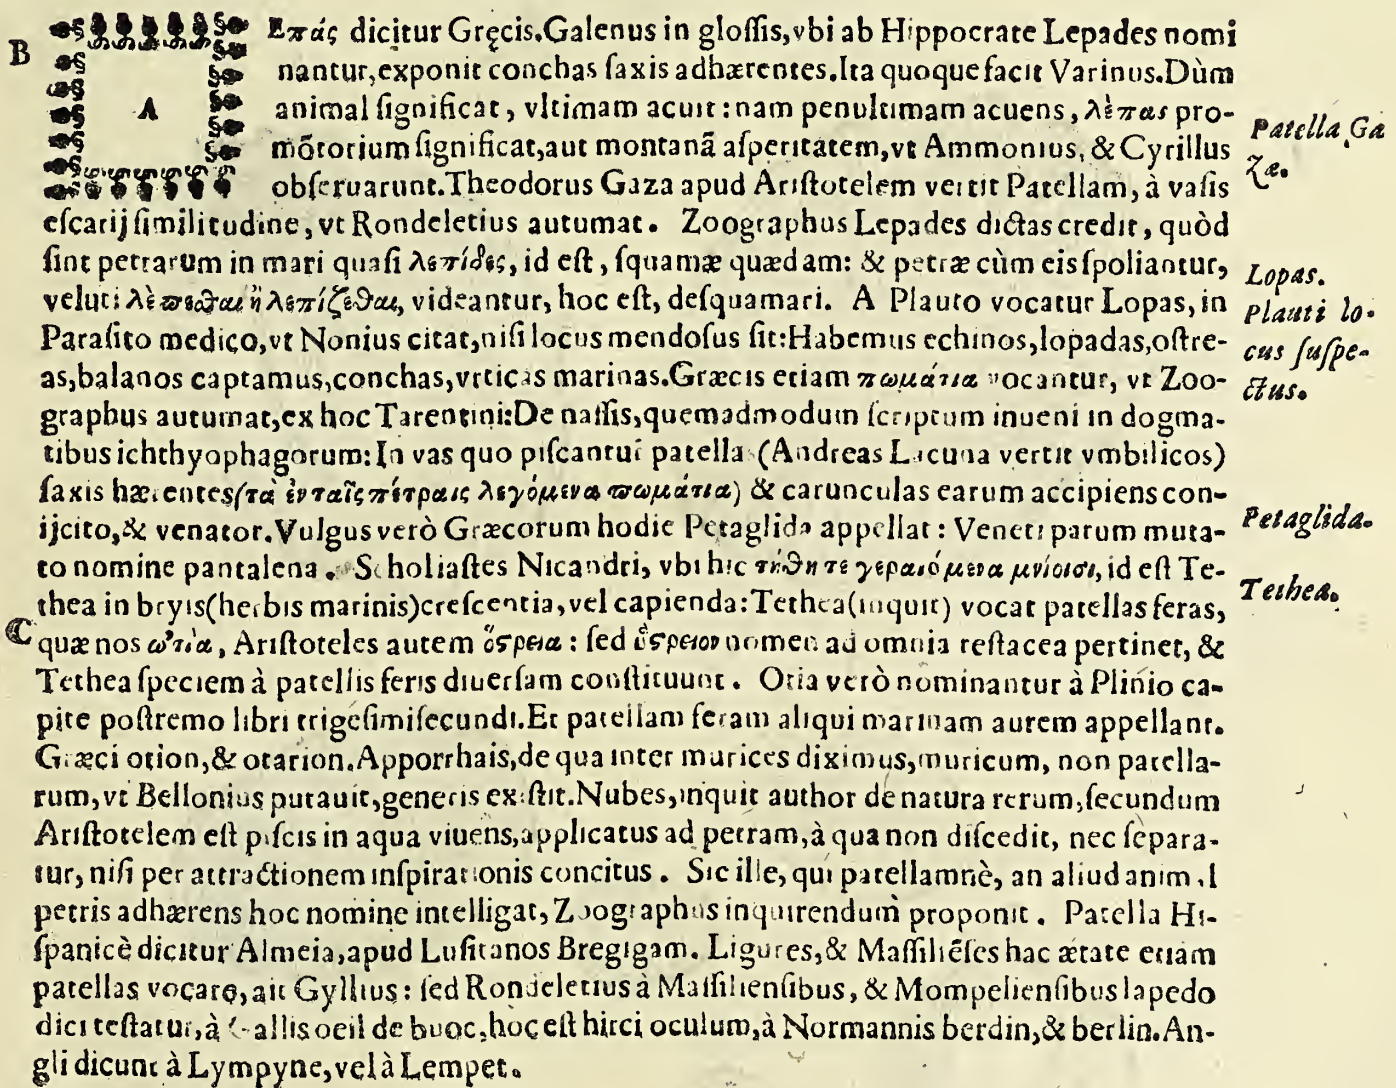 B
A
Επάς dicitur Gręcis.Galenus in gloſſis,vbi ab Hippocrate Lepades nomi
nantur,exponit conchas ſaxis adhærentes.Ita quoque facit Varinus.Dùm
animal ſignificat, vltimam acuit: nam penultimam acuens, λὲπας pro-
mõtorium ſignificat,aut montanã aſperitatem,vt Ammonius, & Cyrillus
obſeruarunt.Theodorus Gaza apud Ariſtotelem vertit Patellam, à vaſis
eſcarij ſimilitudine, vt Rondeletius autumat. Zoographus Lepades dictas credit, quòd
ſint petrarum in mari quaſi λεπίδες, id eſt, ſquamæ quædam: & petræ cùm eis ſpoliantur,
veluti λὲπεσθαι ἢ λεπίζεσθαι, videantur, hoc eſt, deſquamari. A Plauto vocatur Lopas, in
Paraſito medico,vt Nonius citat,niſi locus mendoſus ſit:Habemus echinos,lopadas,oſtre-
as,balanos captamus,conchas,vrticas marinas.Græcis etiam πωμάτια vocantur, vt Zoo-
graphus autumat,ex hoc Tarentini:De naſſis,quemadmodum ſcriptum inueni in dogma-
tibus ichthyophagorum:In vas quo piſcantur patella (Andreas Lacuna vertit vmbilicos)
ſaxis hærentes(τὰ ἐν ταῖς πέτραις λεγόμενα πωμάτια) & carunculas earum accipiens con-
ijcito,& venator.Vulgus verò Græcorum hodie Petaglida appellat: Veneti parum muta-
to nomine pantalena. Scholiaſtes Nicandri, vbi hic τήθη τε γεραιόμενα μνίοισι, id eſt Te-
thea in bryis(herbis marinis)creſcentia,vel capienda:Tethea(inquit) vocat patellas feras,
C
quæ nos ὠτία, Ariſtoteles autem ὄςρεια: ſed ὄςρειον nomen ad omnia teſtacea pertinet, &
Tethea ſpeciem à patellis feris diuerſam conſtituunt. Otia verò nominantur à Plinio ca-
pite poſtremo libri trigeſimiſecundi.Et patellam feram aliqui marinam aurem appellant.
Græci otion,& otarion.Apporrhais,de qua inter murices diximus,muricum, non patella-
rum,vt Bellonius putauit,generis exiſtit.Nubes,inquit author de natura rerum,ſecundum
Ariſtotelem eſt piſcis in aqua viuens,applicatus ad petram,à qua non diſcedit, nec ſepara-
tur, niſi per attractionem inſpirationis concitus. Sic ille, qui patellamnè, an aliud animal
petris adhærens hoc nomine intelligat, Zoographus inquirendum proponit. Patella Hi-
ſpanicè dicitur Almeia,apud Luſitanos Bregigam. Ligures,& Maſſiliẽſes hac ætate etiam
patellas vocare, ait Gyllius: ſed Rondeletius à Maſſilienſibus, & Mompelienſibus lapedo
dici teſtatur,à Gallis oeil de buoc,hoc eſt hirci oculum,à Normannis berdin,& berlin.An-
gli dicunt à Lympyne,vel à Lempet.
Patella Ga
zæ.
Lopas.
Plauti lo-
cus ſuſpe-
ctus.
Petaglida.
Tethea.